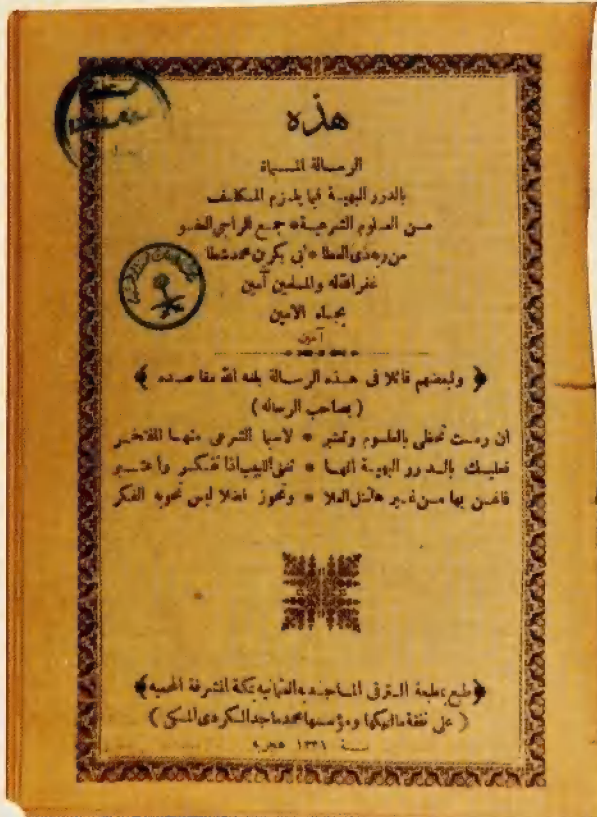 هذه
الرسالة المسماة
بالدرر البهية فيما يلزم المكلف
من العلوم الشرعية * جمع الراجي العفو
من ربه ذي العطا * أبي بكر بن محمد شطا
غفر الله له والمسلمين آمين
بجاه الأمين
آمين
﴿ ولبعضهم قائلا في هذه الرسالة بلغه الله مقاصده ﴾
( بصاحب الرساله )
ان رمت تحظى بالعلوم وتشهر * لاسيما الشرعي منها المفتخر
فعليك بالدرر البهية انها * تغني اللبيب اذا تفكر واعتبر
بها من غير هاتنل العلا * وتحوز فضلا ليس تحويه الفكر
﴿ طبع بمطبعة الترقي الماجدية العثمانية بمكة المشرفة المحمية ﴾
( على نفقة مالكها ومؤسسها محمد ماجد الكردي المكي )
سنة ١٣٣١ هجرية